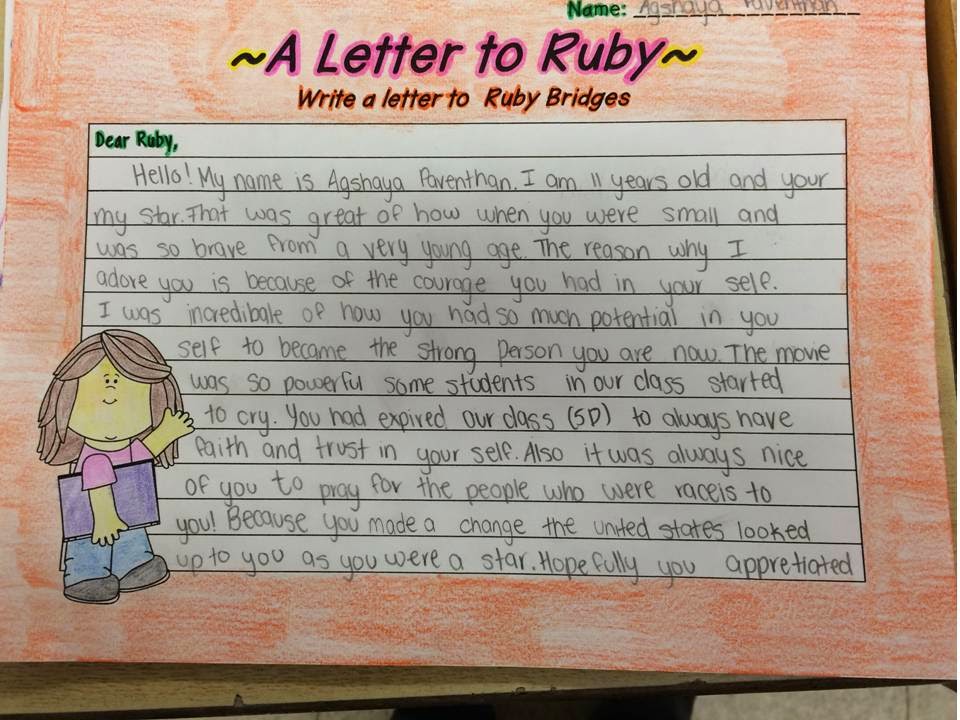 Name: Agshaya Paventhan
~A Letter to Ruby~
Write a letter to Ruby Bridges
Dear Ruby,
Hello! My name is Agshaya Paventhan. I am 11 years old and your
my star. That was great of how when you were small and
was so brave from a very young age. The reason why I
adore you is because of the courage you had in your self.
I was incredibale of how you had so much potential in you
self to became the strong person you are now. The movie
was so powerful some students in our class started
to cry. You had expired our class (5D) to always have
faith and trust in your self. Also it was always nice
of you to pray for the people who were raceis to
you! Because you made a change the united states looked
up to you as you were a star. Hopefully you appretiated